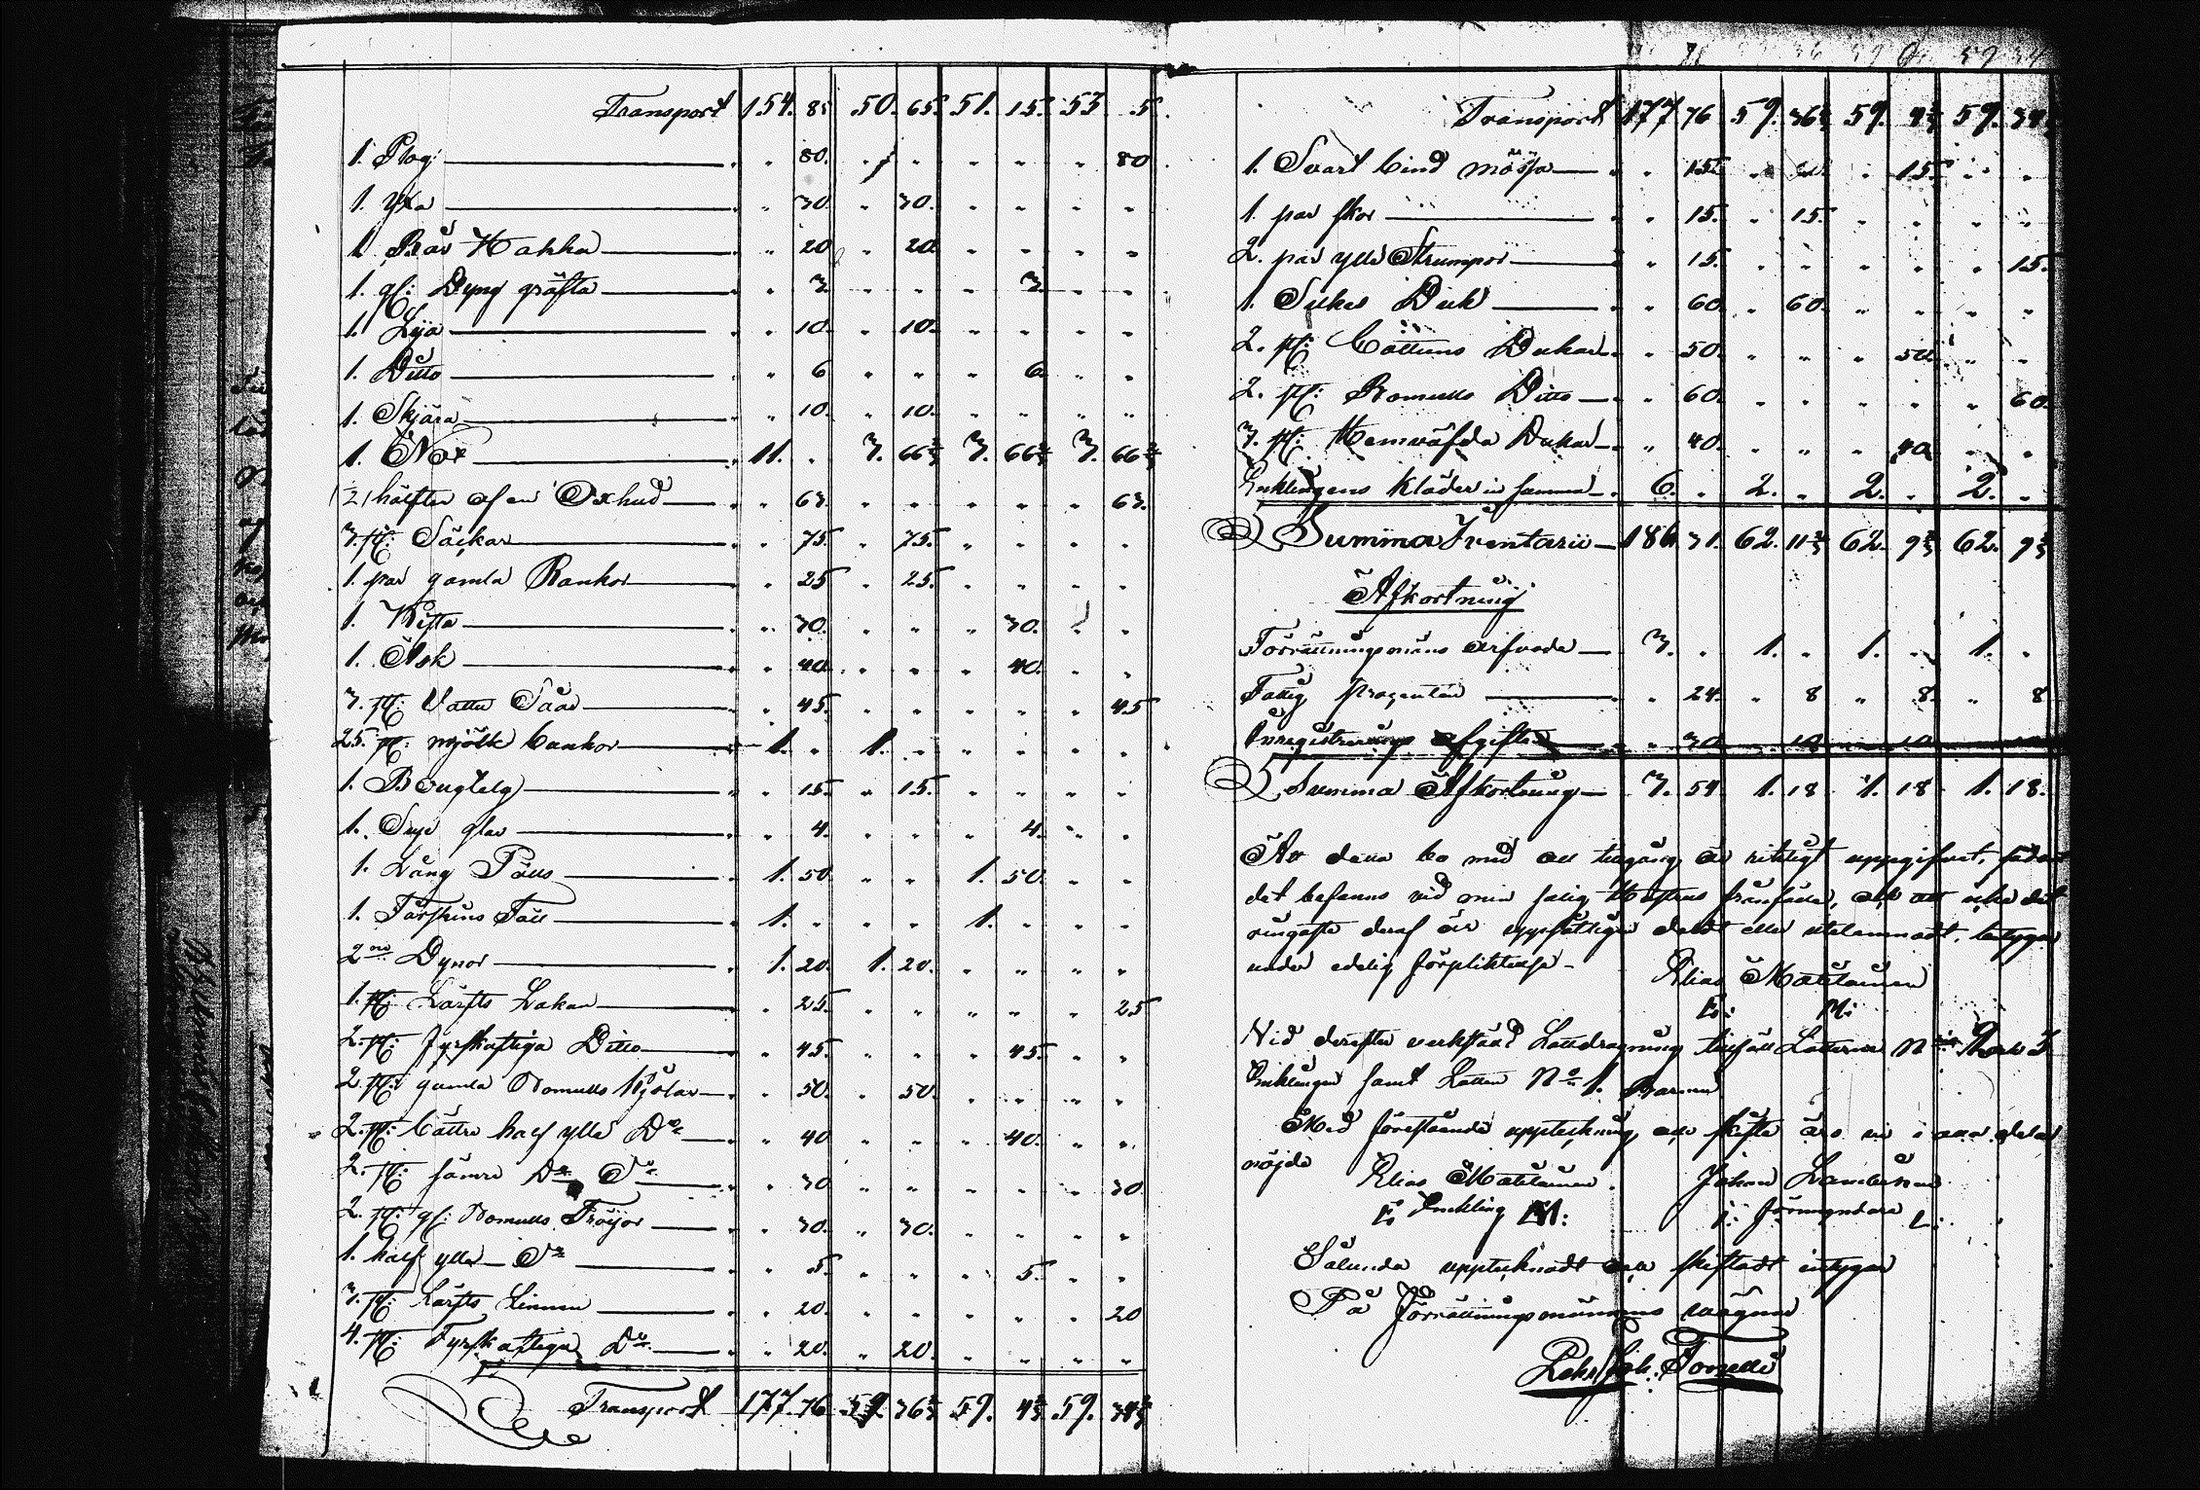 Transport 154. 85 50. 65. 51. 15. 53 5.
1. Plog " 80. " " " " " 80
1. Yxa " 30. " 30. " " " "
1. Rås Hakka " 20 " 20 " " " "
1. gl: Dyng gräfta " 3 " " " 3. " "
1. Lija " 10. " 10. " " " "
1. Ditto " 6 " " " 6. " "
1. Skjära " 10. " 10. " " " "
1. Nöt 11. " 3. 66 2/3 3. 66 2/3 3. 66 2/3
(1/2) hälften af en Oxhud " 63. " " " " " 63.
3. st: Säckar " 75 " 75. " " " "
1. par gamla Rankor " 25 " 25. " " " "
1. Kista " 30. " " " 30. " "
1. Ask " 40. " " " 40. " "
3. st: Vattu Såar " 45. " " " " " 45
25. st: mjölk bunkor 1. " 1. " " " " "
1. Bougtelg " 15. " 15. " " " "
1. glas " 4. " " " 4. " "
1. Lång Päls 1. 50. " " 1. 50. " "
1. Fårskins Fäll 1. " " " 1. " " "
2ne Dynor 1. 20. 1. 20. " " " "
1. st: Lärfts Lakan " 25. " " " " " 25
2. st: fyrskaftiga Ditto " 45. " " " 45. " "
2. st: gamla Bomulls Kjolar " 50. " 50. " " " "
2. st: bättre half ylle Do " 40 " " " 40. " "
2. st: sämre Do Do " 30 " " " " " 30
2. st: gl: Bomulls Tröijor " 30. " 30. " " " "
1. half ylle Do " 5. " " " 5. " "
3. st: Lärfts Linnen " 20. " " " " " 20
4. st: Fyrskaftiga Do " 20. " 20. " " " "
Transport 177. 76 59. 36 2/3 59. 4 2/3 59. 34 2/3
Transport 177 76 59. 36 2/3 59. 4 2/3 59. 34 2/3
1. Svart bind mössa " 15. " " " 15. " "
1. par skor " 15. " 15. " " " "
2. par ylle Strumpor " 15. " " " " " 15.
1. Silkes Duk " 60. " 60. " " " "
2. st: Cattuns Dukar " 50. " " " 50. " "
2. st: Bomulls Ditto " 60. " " " " " 60.
3. st: Hemväfda Dukar " 40. " " " 40. " "
Enklingens kläder in summa 6. " 2. " 2. " 2. "
Summa Inventarii 186. 31. 62. 11 2/3 62. 9 2/3 62. 9 2/3
Afkortning
Förrättningsmäns arfvode 3. " 1. " 1. " 1. "
Fattig procenten " 24. " 8 " 8. " 8
Inregistrerings afgifter " 30. " 10 " 10
Summa Afkortning 3. 54 1. 18 1. 18. 1. 18.
At detta bo med all tillgång är riktigt uppgifvet, sådant
det befanns vid min salig Hustrus frånfälle, och att icke det
ringaste deraf är uppsåtligen doldt eller utelemnadt, betygar
under edelig förpliktelse.
Elias Matilainen
E: M:
Vid derefter verkstäld Lottdragning tillföll Lotterne No 2 och 3
Enklingen samt Lotten No 1. Barnen
Med förestående uppteckning och skifte äro vi i allo delar
nöjde
Elias Matilainen Johan
E: Enkling M: J: förmyndare L:
Sålunda upptecknadt och skiftadt intygar
På Förrättningsmännens vägnar
Joh: Tornell